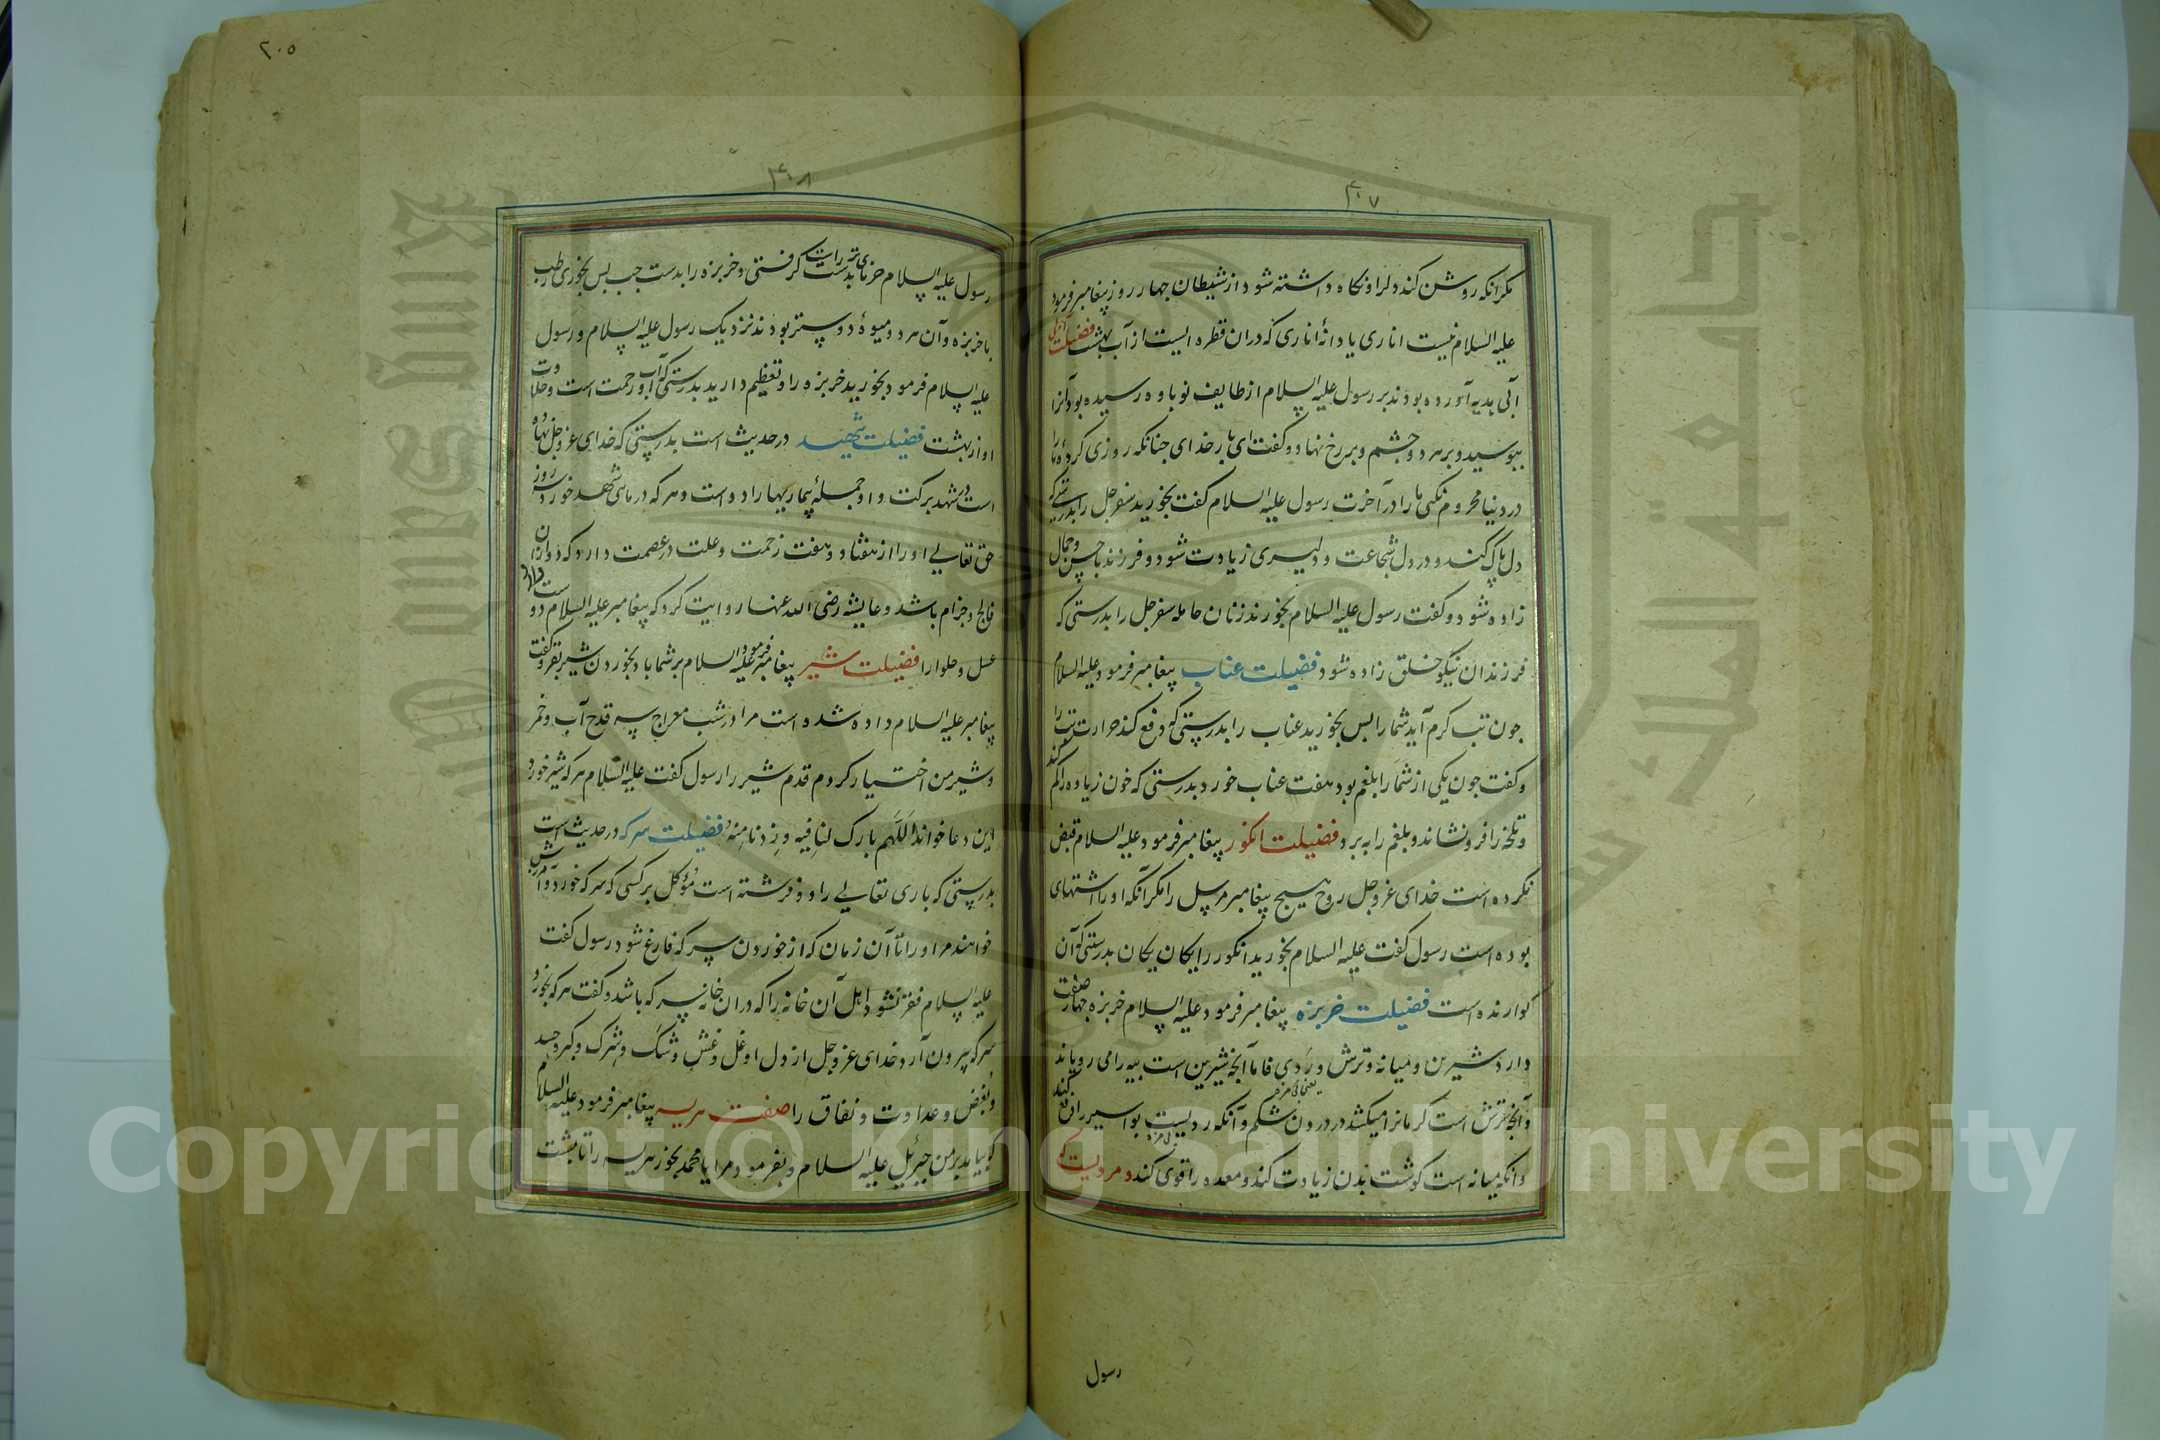 ۴۰۷
مکر انکه روشن کند دل او نکاه داشته شود از شیطان جهار روز پیغامبر فرمود
علیه السلام نیست اناری یا دانۀ اناری که دران قطره ایست از آب بهشت فضیلت آبی
آبی هدیه آورده بودند بر رسول علیه السلام از طایف نوباوه رسیده بود آنرا
ببوسید و بر هر دو چشم و بر رخ نهاد و کفت ای بار خدای جنانکه روزی کردۀ ما را
در دنیا محروم نکنی ما را در آخرت رسول علیه السلام کفت بخورید سفرجل را بدرستی که
دل پاک کند و در دل شجاعت و دلیری زیادت شود و فرزند با حسن و جمال
زاده شود و کفت رسول علیه السلام بخورند زنان حامله سفرجل را بدرستی که
فرزندان نیکو خلق زاده شود فضیلت عناب پیغامبر فرمود علیه السلام
جون تب کرم آید شما را بس بخورید عناب را بدرستی که دفع کند حرارت تب را
و کفت جون یکی از شما را بلغم بود هفت عناب خورد بدرستی که خون زیاده را کم کند
و تلخه را فرو نشاند و بلغم را به برد فضیلت انکور پیغامبر فرمود علیه السلام قبض
نکرده است خدای عز و جل روح هیچ پیغامبر مرسل را مکر آنکه او را اشتهای
بوده است رسول کفت علیه السلام بخورید انکور را یکان یکان بدرستی که آن
کوارنده است فضیلت خربزه پیغامبر فرمود علیه السلام خربزه جهار صفت
دارد شیرین و میانه و ترش و ردی فاما آنچه شیرین است پیه را می رویاند
و آنچه ترش است کرمانرا میکشد در درون شکم و آنکه ردیست بواسیر را دفع کند
و انکه میانه است کوشت بدن زیادت کند و معده را قوی کند و مردیست که
رسول
۲۰۵
۴۰۸
رسول علیه السلام خرمای تر بدست راست کرفتی و خربزه را بدست جب بس بخوری رطب
با خربزه و آن هر دو میوۀ دوستر بودند نزدیک رسول علیه السلام و رسول
علیه السلام فرمود بخورید خربزه را و تعظیم دارید بدرستی که آب او رحمت است و حلاوت
او از بهشت فضیلت شهد در حدیث است بدرستی که خدای عز و جل نهاده
است در شهد برکت و او جملۀ بیماریها را دواست و هر که در ماهی شهد خورد سه روز
حق تعالی او را از هفتاد و هفت زحمت و علت در عصمت دارد که دوای آن
فالج و جزام باشد و عایشه رضی الله عنها روایت کرد که پیغامبر علیه السلام دوست دارد
عسل و حلوا را فضیلت شیر پیغامبر فرمود علیه السلام بر شما باد بخوردن شیر بقر و کفت
پیغامبر علیه السلام داده شده است مرا در شب معراج سه قدح آب و خمر
و شیر من اختیار کردم قدم شیر را رسول کفت علیه السلام هر که شیر خورد
این دعا خواند اللهم بارک لنا فیه و زدنا منه فضیلت سرکه در حدیث است
بدرستی که باری تعالی را دو فرشته است مؤکل بر کسی که سرکه خورد و آمرزش
خواهند مر او را تا آن زمان که از خوردن سرکه فارغ شود رسول کفت
علیه السلام فقر نشود اهل آن خانه را که دران خانه سرکه باشد و کفت هر که بخورد
سرکه بیرون آرد خدای عز و جل از دل او غل و غش و شک و شرک و کبر و حسد
و بغض و عداوت و نفاق را صفت هریسه پیغامبر فرمود علیه السلام
که بیامد بر من جبرئیل علیه السلام و بفرمود مرا یا محمد بخور هریسه را تا بشت
Copyright © King Saud University
King Saud University
جامعة الملك سعود